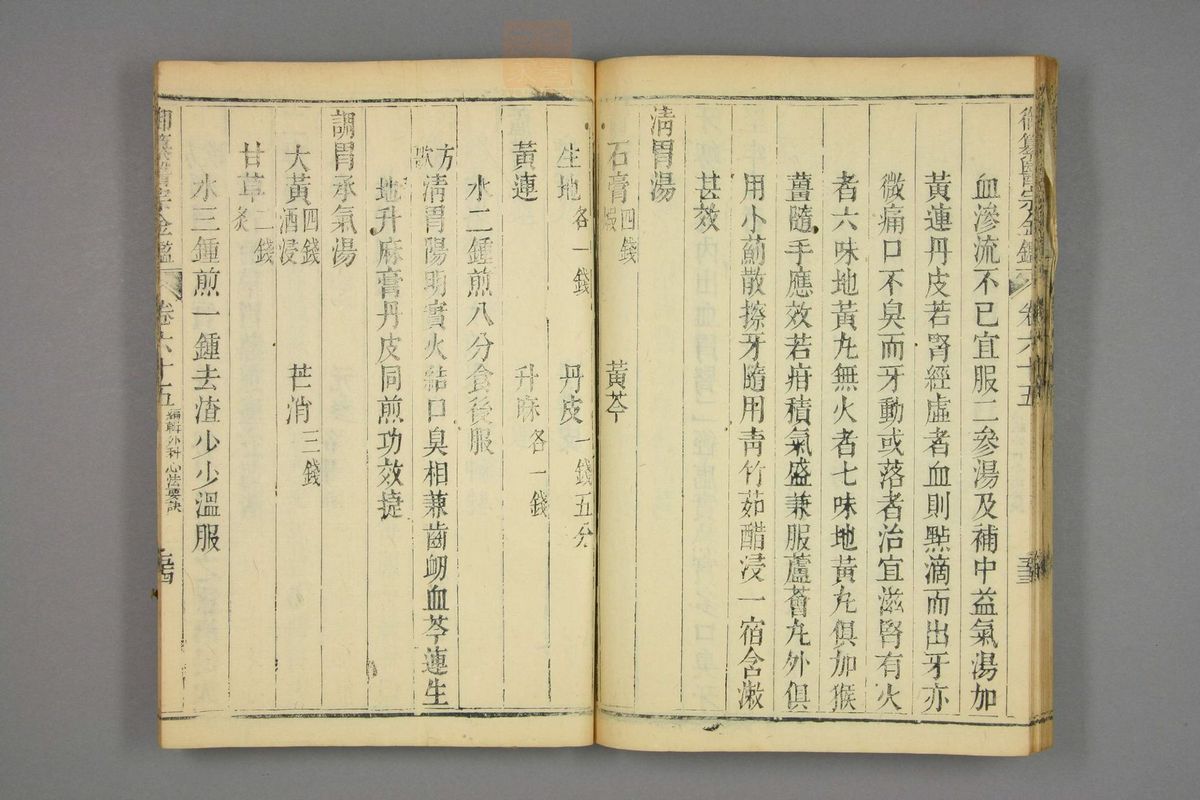 御纂醫宗金鑑 卷六十五
血滲流不已宜服二參湯及補中益氣湯加
黃連丹皮若腎經虛者血則㸃滴而出牙亦
微痛口不臭而牙動或落者治宜滋腎有火
者六味地黃丸無火者七味地黃丸俱加猴
薑隨手應效若疳積氣盛兼服蘆薈丸外俱
用小薊散擦牙隨用靑竹茹醋浸一宿含漱
甚效
淸胃湯
石膏 四錢煅 黃芩
生地 各一錢 丹皮 一錢五分
黃連 升麻 各一錢
水二鍾煎八分食後服
方歌 淸胃陽明實火結口臭相兼齒衂血芩連生
地升麻膏丹皮同煎功效捷
調胃承氣湯
大黃 四錢酒浸 芒消 三錢
甘草 二錢炙
水三鍾煎一鍾去渣少少溫服
御纂醫宗金鑑 卷六十五 編輯外科心法要訣 五十四